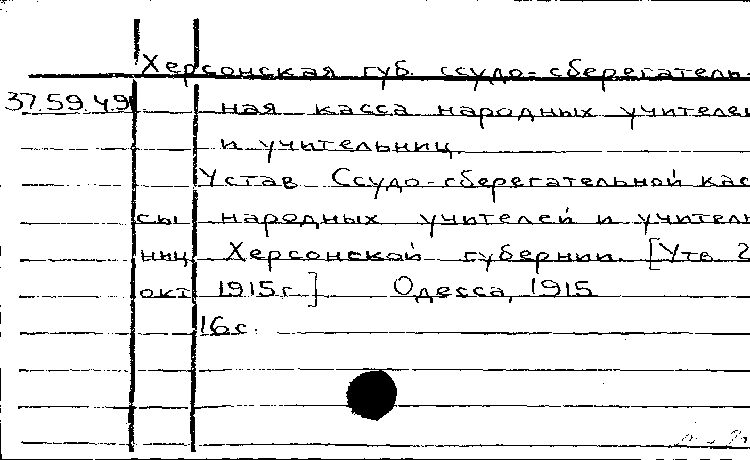 Херсонская губ. ссудо-сберегатель
37.59.49 ная касса народных учителей
и учительниц.
Устав Ссудо-сберегательной кас
сы народных учителей и учитель
ниц Херсонской губернии. [Утв 2
окт 1915г.] Одесса, 1915
16с.